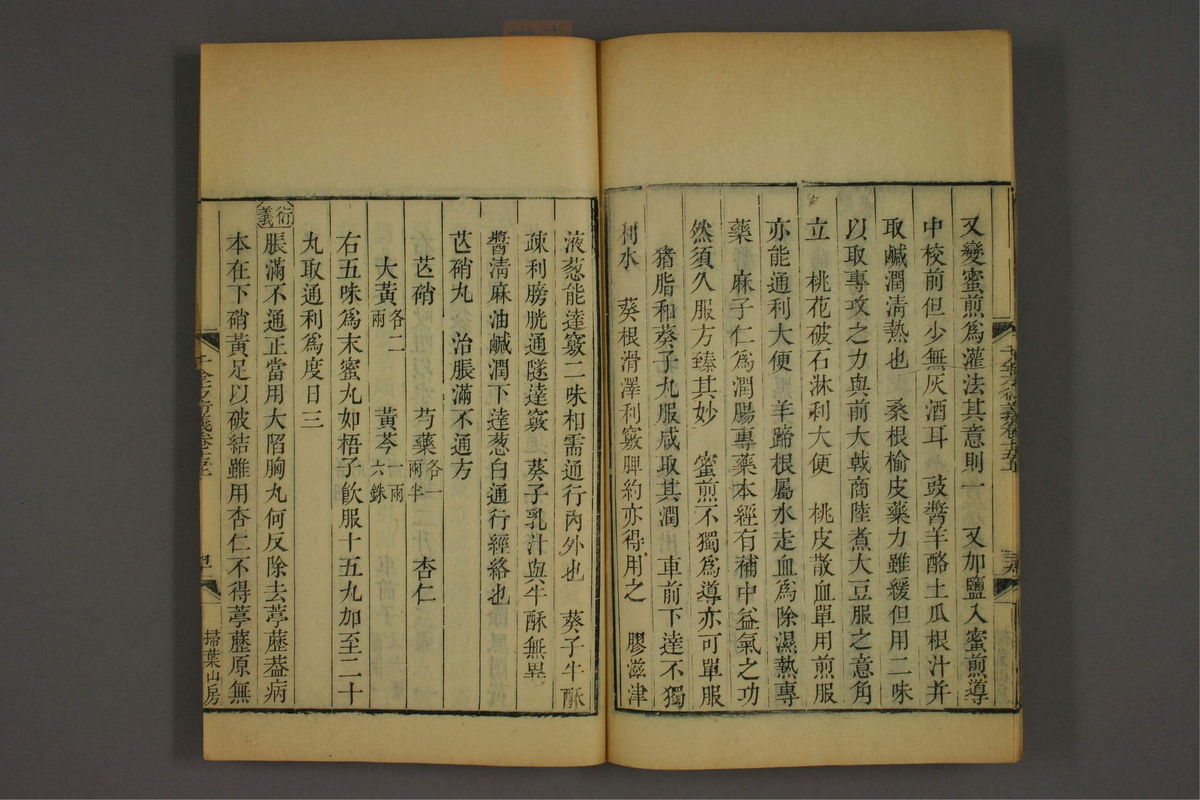 又變蜜煎爲灌法其意則一　又加鹽入蜜煎導
中校前但少無灰酒耳　豉醬羊酪土瓜根汁并
取鹹潤清熱也　桑根榆皮藥力雖緩但用二味
以取專攻之力與前大戟商陸煮大豆服之意角
立　桃花破石淋利大便　桃皮散血單用煎服
亦能通利大便　羊蹄根屬水走血爲除濕熱專
藥　麻子仁爲潤腸專藥本經有補中益氣之功
然須久服方臻其妙　蜜煎不獨爲導亦可單服
猪脂和葵子丸服咸取其潤　車前下達不獨
利水　葵根滑澤利竅脾約亦得用之　膠滋津
液葱能達竅二味相需通行內外也　葵子牛酥
疎利膀胱通隧達竅　葵子乳汁與牛酥無異
醬清麻油鹹潤下達葱白通行經絡也
芒硝丸　治脹滿不通方
芒硝　芍藥各一兩半　杏仁
大黃各二兩　黃芩一兩六銖
右五味爲末蜜丸如梧子飲服十五丸加至二十
丸取通利爲度日三
衍義
脹滿不通正當用大陷胸丸何反除去葶藶葢病
本在下硝黃足以破結雖用杏仁不得葶藶原無
千金方衍義卷十五
掃葉山房